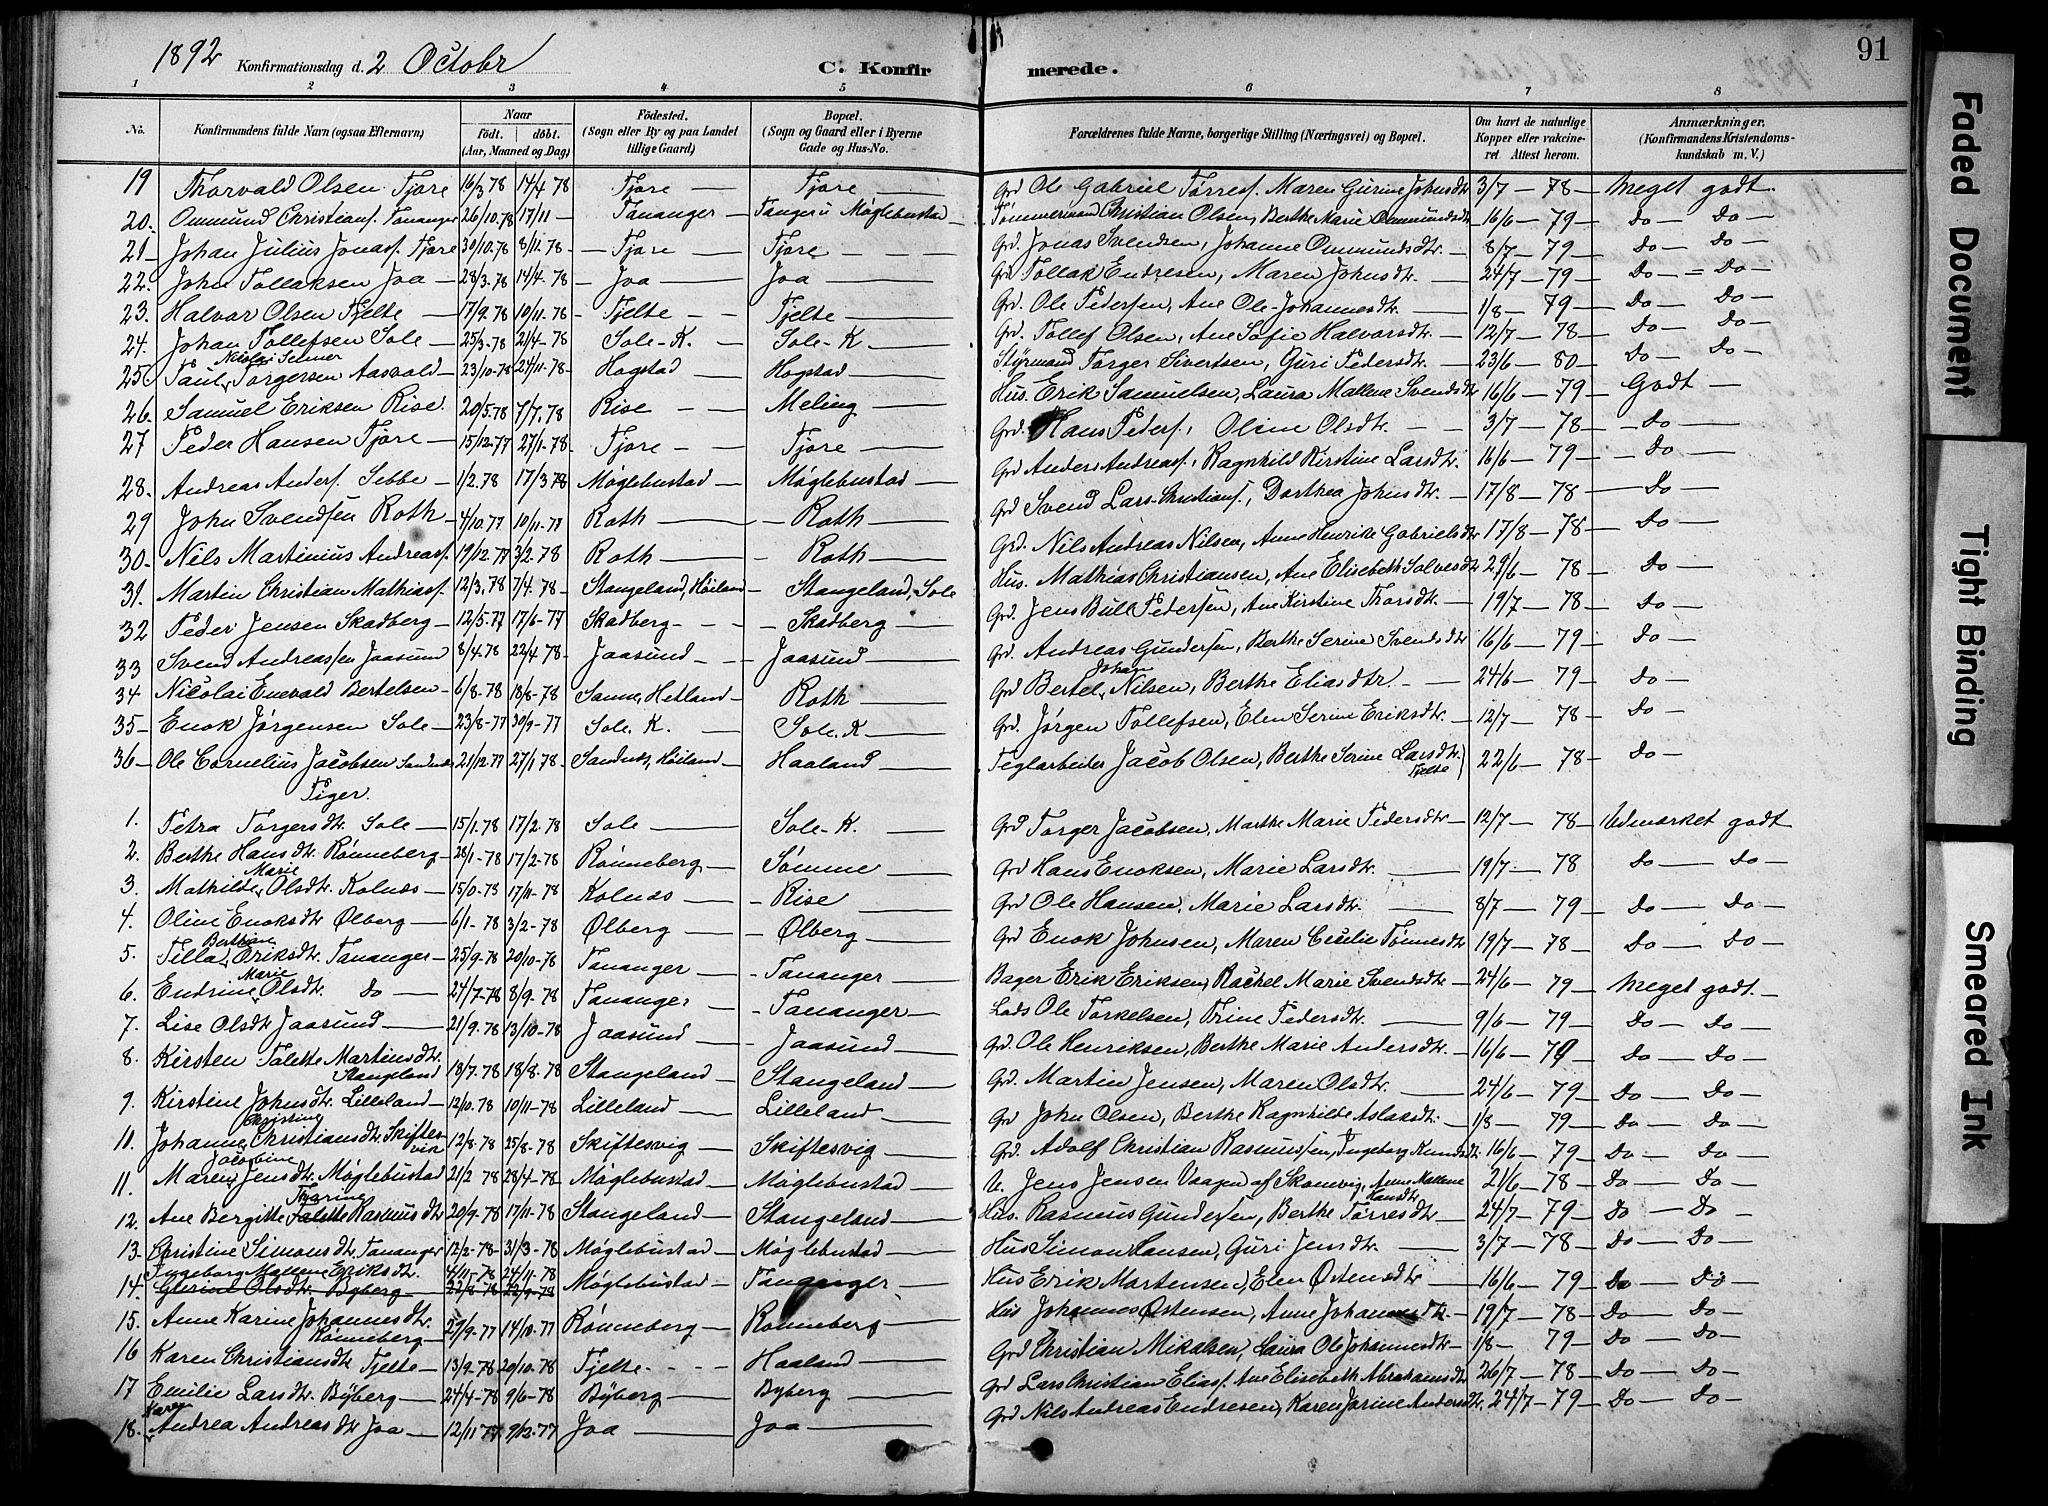 1892 Konfirmationsdag d. 2 Octobr C. Konfirmerede. 91
1 2 3 4 5 6 7 8
No. Konfirmandens fulde Navn (ogsaa Efternavn) Naar født. døbt. (Aar, Maaned og Dag) Fødested. (Sogn eller By og paa Landet tillige Gaard) Bopæl. (Sogn og Gaard eller i Byerne Gade og Hus-No. Forældrenes fulde Navne, borgerlige Stilling (Næringsvei) og Bopæl. Om havt de naturlige Kopper eller vakcineret Attest herom. Anmærkninger. (Konfirmandens Kristendomskundskab m. V.)
19 Thorvald Olsen Tjore 16/3 78 14/4 78 Tjore — Tjore — Grd Ole Gabriel Tørress. Maren Gurine Johnsdtr 3/7 — 78 — Meget godt.
20. Ommund Christians. Tananger 26/10.78 17/11 — Tananger — Tanger u Møglebustad — Tømmermand Christian Olsen, Berthe Marie Ommundsdtr 16/6 — 79 — Do — Do —
21 — Johan Julius Jonass. Tjore 30/10.78 8/12.78 — Tjore — Tjore — Grd. Jonas Svendsen, Johanne Ommundsdtr. — 8/7 — 79 — Do — Do —
22. John Tollaksen Joa — 28/3.78 14/4.78 — Joa — Joa — Grd Tollak Endresen, Maren Johnsdtr. — 24/7 — 79 — Do — Do —
23. Halvor Olsen Tjelte — 17/9.78 10/11.78 — Tjelte — Tjelte — Grd. Ole Pedersen, Ane Ole Johannesdtr. — 1/8 — 79 — Do — Do —
24. Johan Tollefsen Sole — 25/3-78 21/4-78 Sole-K. — Sole-K — Grd. Tollef Olsen, Ane Sofie Halvorsdtr. — 12/7 — 78 — Do — Do —
25. Paul Nicolai Selmer Torgersen Aasvald — 23/10-78 24/11-78 — Hogstad — Hogstad — Styrmand Torger Sivertsen, Guri Pedersdtr. — 23/6 — 80 — Do — Do —
26. Samuel Eriksen Rise. 20/5.78 7/7.78 Rise — Meling — Hus. Erik Samuelsen, Laura Mallene Svendsdtr 16/6 — 79 — Godt —
27 Peder Hansen Tjore — 15/12.77 27/1.78 — Tjore — Tjore — Grd. Hans Peders., Oline Olsdtr — 3/7 — 78 — Do —
28. Andreas Anders. Sebbe — 1/2.78 17/3 78 Møglebustad — Møglebustad — Grd Anders Andreass., Ragnhild Kirstine Larsdtr. 16/6 — 79 — Do —
29 John Svendsen Roth — 4/10.77 10/11-77 Roth — Roth — Grd Svend Lars-Christians., Dorthea Johnsdtr. — 17/8 — 78 — Do —
30. Nils Martinius Andreass. 19/12.77 3/2.78 Roth — Roth — Grd. Nils Andreas Nilsen, Anne Henrike Gabrielsdtr 17/8 — 78 — Do —
31. Martin Christian Mathiass. 12/3.78 7/4.78 — Stangeland, Høiland — Stangeland, Sole Hus. Mathias Christiansen, Ane Elisebeth Salvesdtr 29/6 — 78 — Do —
32 Peder Jensen Skadberg — 12/5.77 17/6-77 Skadberg — Skadberg — Grd. Jens Bull Pedersen, Ane Kirstine Thorsdtr. — 19/7 — 78 — Do —
33 Svend Andreassen Jaasund 8/4.78 22/4-78 — Jaasund — Jaasund — Grd. Andreas Gundersen, Berthe Serine Svendsdtr 16/6 — 79 — Do —
34 Nicolai Enevald Bertelsen — 6/8-78 18/8-78 Sanne, Hetland — Roth — Grd Bertel Johan Nilsen, Berthe Eliasdtr. — 24/6 — 79 — Do —
35 — Enok Jørgensen Sole — 23/8-77 30/9-77 Sole. K. — Sole. K — Grd. Jørgen Tollefsen, Elen Serine Eriksdtr. — 12/7 — 78 — Do —
36 — Ole Cornelius Jacobsen Sandnes 21/12.77 27/1 78 — Sandnes, Høiland — Haaland — Teglarbeider Jacob Olsen, Berthe Serine Larsdtr. Tjelte) 22/6 — 78 — Do —
Piger.
1. Petra Torgersdtr. Sole — 15/1.78 17/2.78 Sole — Sole-K. — Grd Torger Jacobsen, Marthe Marie Pedersdtr — 12/7 — 78 — Udmærket godt
2. Berthe Hansdtr. Rønneberg — 28/1-78 17/2-78 Rønneberg — Sømme — Grd Hans Enoksen, Marie Larsdtr. — 19/7 — 78 Do — Do —
3. Mathilde Marie Olsdtr. Kolnes — 17/11-78 Kolnæs — Rise — Grd Ole Hansen, Marie Larsdtr. — 8/7 — 79 — Do — Do —
4. Oline Enoksdtr Ølberg — 6/1-78 3/2-78 Ølberg — Ølberg — Grd Enok Johnsen, Maren Cecilie Tønnesdtr 19/7 — 78 — Do — Do —
5. Tilla Berthine Eriksdtr. Tananger — 25/9-78 20/10-78 Tananger — Tananger — Bager Erik Eriksen, Rachel Marie Svendsdtr. 24/6 — 79 — Meget godt. —
6. Endrine Marie Olsdtr. Do — 24/7-78 8/9-78 Tananger — Tananger — Lods Ole Torkelsen, Trine Pedersdtr. — 9/6 — 79 — Do — Do —
7. Lise Olsdtr Jaasund — 21/9.78 13/10-78 Jaasund — Jaasund — Grd. Ole Henriksen, Berthe Marie Andersdtr. — 16/6 — 79 Do — Do —
8. Kirsten Talette Martinsdtr. Stangeland 18/7.78 18/8.78 Stangeland — Stangeland — Grd. Martin Jensen, Maren Olsdtr. — 24/6 — 79 — Do — Do —
9. Kirstine Johnsdtr. Lilleland — 12/10.78 10/11-78 Lilleland — Lilleland — Gr John Olsen, Berthe Ragnhilde Aslaksdtr. 1/8 — 79 — Do — Do —
10. Johanne Christine Christiansdtr. Skiftesvik 12/8.78 25/8-78 Skiftesvig — Skiftesvig — Grd. Adolf Christian Rasmussen, Ingeborg Knudsdtr. 16/6 — 79 — Do — Do —
11. Maren Jacobine Jensdtr. Møglebustad 21/2 78 28/4-78 Møglebustad — Møglebustad — U. Jens Jensen Vaagen af Skonevig, Anne Mallene Hansdtr 21/6 — 78 — Do — Do —
12. Ane Bergitte Talette Thorine Rasmusdtr 20/9.78 17/11-78 Stangeland — Stangeland — Hus. Rasmus Gundersen, Berthe Tørresdtr — 24/7 — 79 — Do — Do —
13. Christine Simonsdtr. Tananger 12/2-78 31/3-78 Møglebustad — Møglebustad — Hus Simon Hansen, Guri Jensdtr. — 3/7 — 78 — Do — Do —
Ingeborg Mallene Eriksdtr. 4/11-78 24/11-78
14. Olsdtr. Byberg — 22/8-78 22/9-78 Møglebustad — Tananger — Hus Erik Martensen, Elen Østensdtr — 16/6 — 79 — Do — Do —
15. Anne Karine Johannesdtr. Rønneberg — 29/9-77 14/10.77 Rønneberg — Rønneberg — Hus Johannes Østensen, Anne Johannesdtr. — 19/7 — 78 — Do — Do —
16 Karen Christiansdtr Tjelte — 13/9-78 20/10-78 Tjelte — Haaland — Grd Christian Mikalsen, Laura Ole Johannesdtr — 1/8 — 79 — Do — Do —
17 Emilie Larsdtr. Byberg — 24/4-78 9/6-78 Byberg — Byberg — Grd Lars Christian Eliass. Ane Elisebeth Abrahamsdtr 26/7 — 78 — Do — Do —
18. Karen Andrea Andreasdtr Joa — 12/11 77 9/12-77 Joa — Joa — Grd Nils Andreas Endresen, Karen Jorine Andersdtr. 24/7 — 79 — Do — Do —
Faded Document
Tight Binding
Smeared Ink